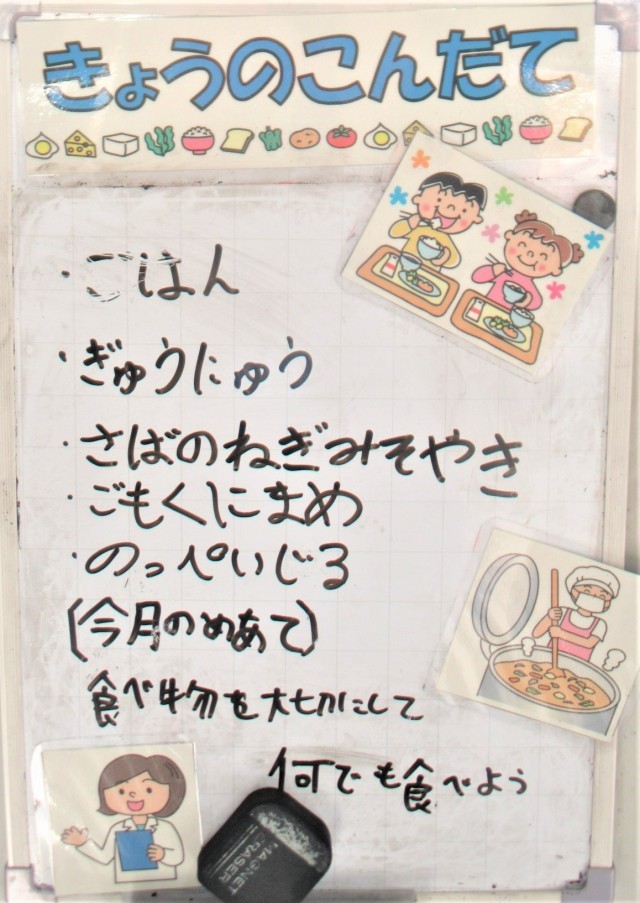 きょうのこんだて
・ごはん
・ぎゅうにゅう
・さばのねぎみそやき
・ごもくにまめ
・のっぺいじる
(今月のめあて)
食べ物を大切にして
何でも食べよう
MAGNET
RASER